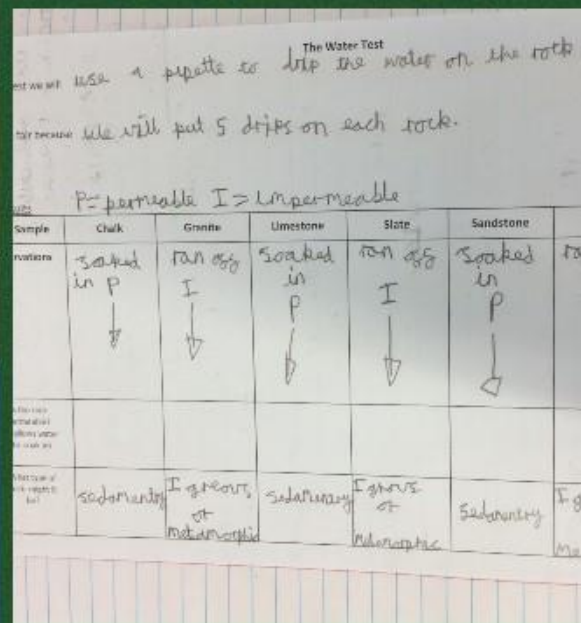 The Water Test
est we will use a pipette to drip the water on the rock
fair because We will put 5 drips on each rock.
P=permeable I=impermeable
Sample Chalk Granite Limestone Slate Sandstone
rvations soaked in P ran off I soaked in P ran off I soaked in P
sedamentry Igreous or metamorphic sedamenary Igrous or Metamorphic Sedamentry